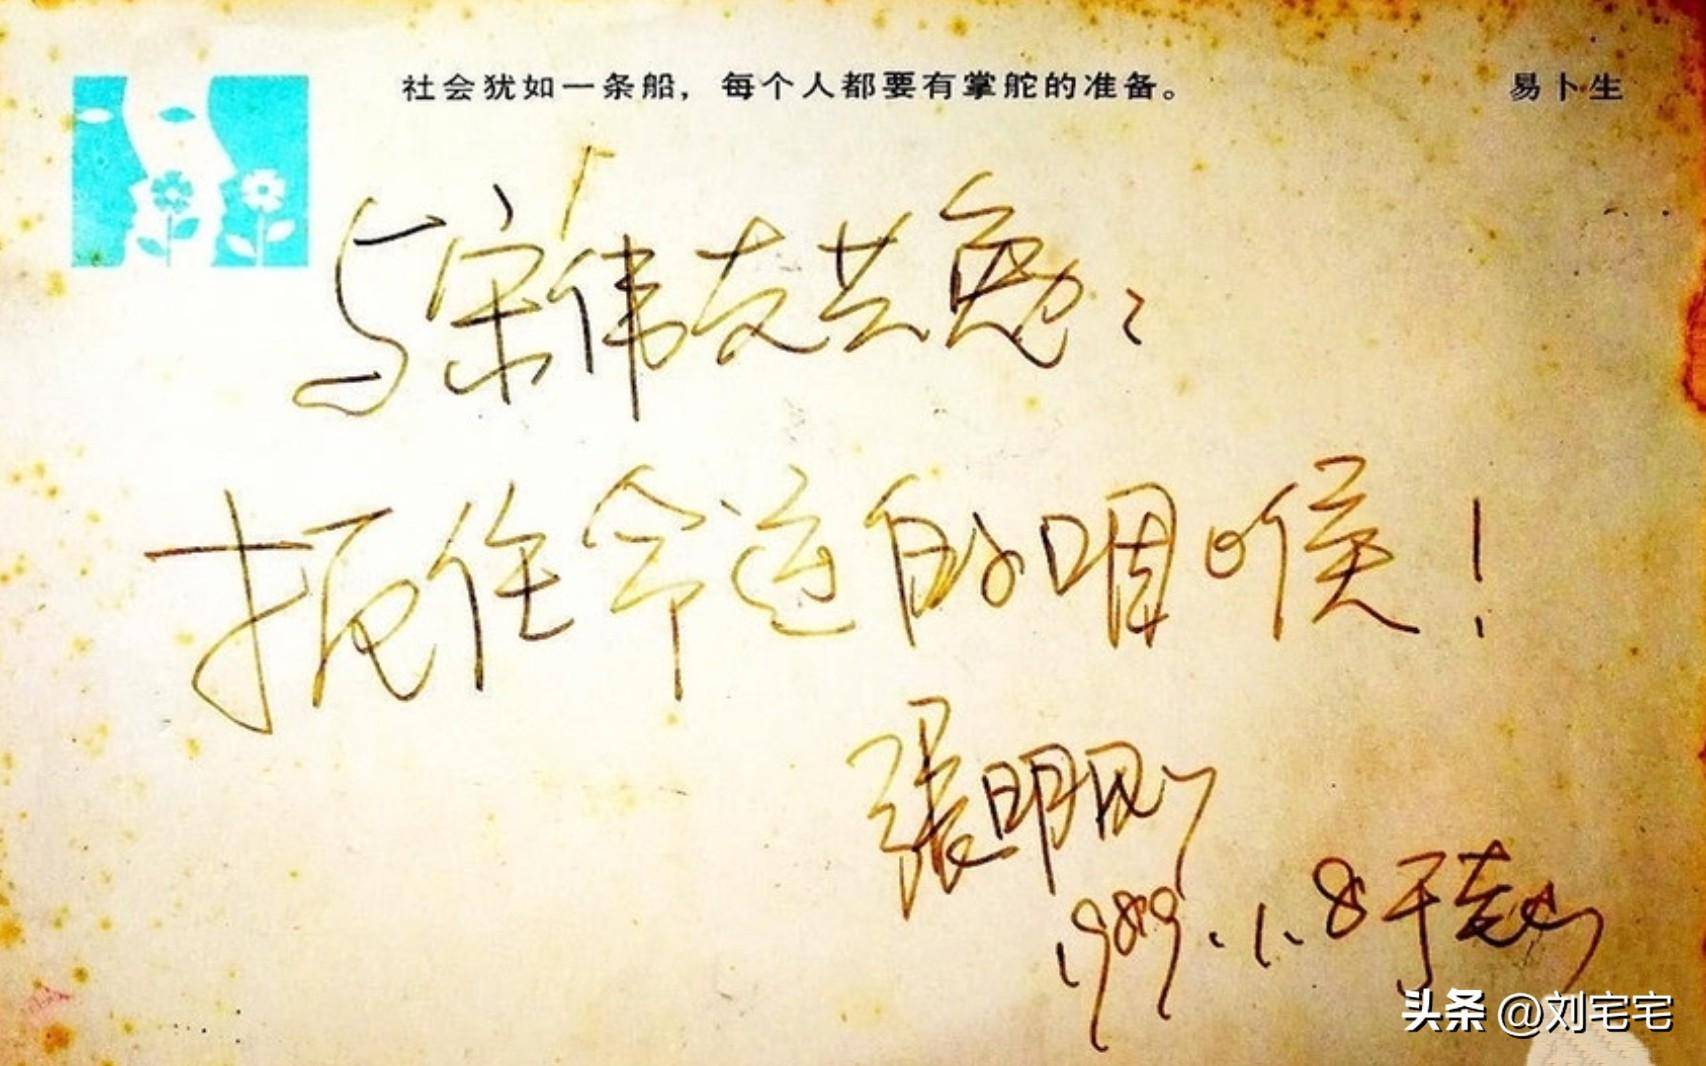 社会犹如一条船，每个人都要有掌舵的准备。 易卜生
与宋伟友共勉：
扼住命运的咽喉！
張明刚
1989.1.8于
头条 @刘宅宅